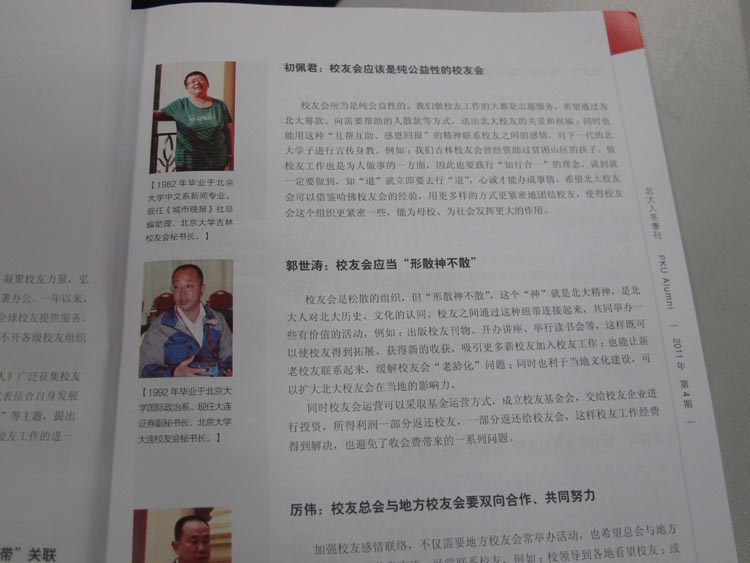 初佩君：校友会应该是纯公益性的校友会
校友会应当是纯公益性的。我们做校友工作的大都是志愿服务。希望通过为
北大筹款、向需要帮助的人散款等方式，送出北大校友的关爱和祝福；同时也
能用这种“互帮互助、感恩回报”的精神联系校友之间的感情，对下一代的北
大学子进行言传身教。例如：我们吉林校友会曾经资助过贫困山区的孩子。做
校友工作也是为人做事的一方面，因此也要践行“知行合一”的理念，说到就
一定要做到，知“道”就立即要去行“道”，心诚才能办成事情。希望北大校友
会可以借鉴哈佛校友会的经验，用更多样的方式更紧密地团结校友，使得校友
会这个组织更紧密一些，能为母校、为社会发挥更大的作用。
【1982年毕业于北京
大学中文系新闻专业。
现任《城市晚报》社总
编助理、北京大学吉林
校友会秘书长。】
郭世涛：校友会应当“形散神不散”
校友会是松散的组织，但“形散神不散”，这个“神”就是北大精神，是北
大人对北大历史、文化的认同。校友之间通过这种纽带连接起来，共同举办一
些有价值的活动，例如：出版校友刊物、开办讲座、举行读书会等，这样既可
以使校友得到拓展、获得新的收获，吸引更多新校友加入校友工作；也能让新
老校友联系起来，缓解校友会“老龄化”问题；同时也利于当地文化建设，可
以扩大北大校友会在当地的影响力。
同时校友会运营可以采取基金运营方式，成立校友基金会，交给校友企业进
行投资，所得利润一部分返还校友，一部分返还给校友会，这样校友工作经费
得到解决，也避免了收会费带来的一系列问题。
【1992年毕业于北京大
学国际政治系。现任大连
证券副秘书长、北京大学
大连校友会秘书长。】
厉伟：校友总会与地方校友会要双向合作、共同努力
加强校友感情联络，不仅需要地方校友会常举办活动，也希望总会与地方
经常联系校友，例如：校领导到各地看望校友；或
北大人冬季刊 PKU Alumni 2011年 第4期
凝聚校友力量，弘
署办公。一年以来，
全球校友提供服务、
不开各级校友组织
人》广泛征集校友
代表结合自身发展
”等主题，提出
校友工作的进一
带”关联